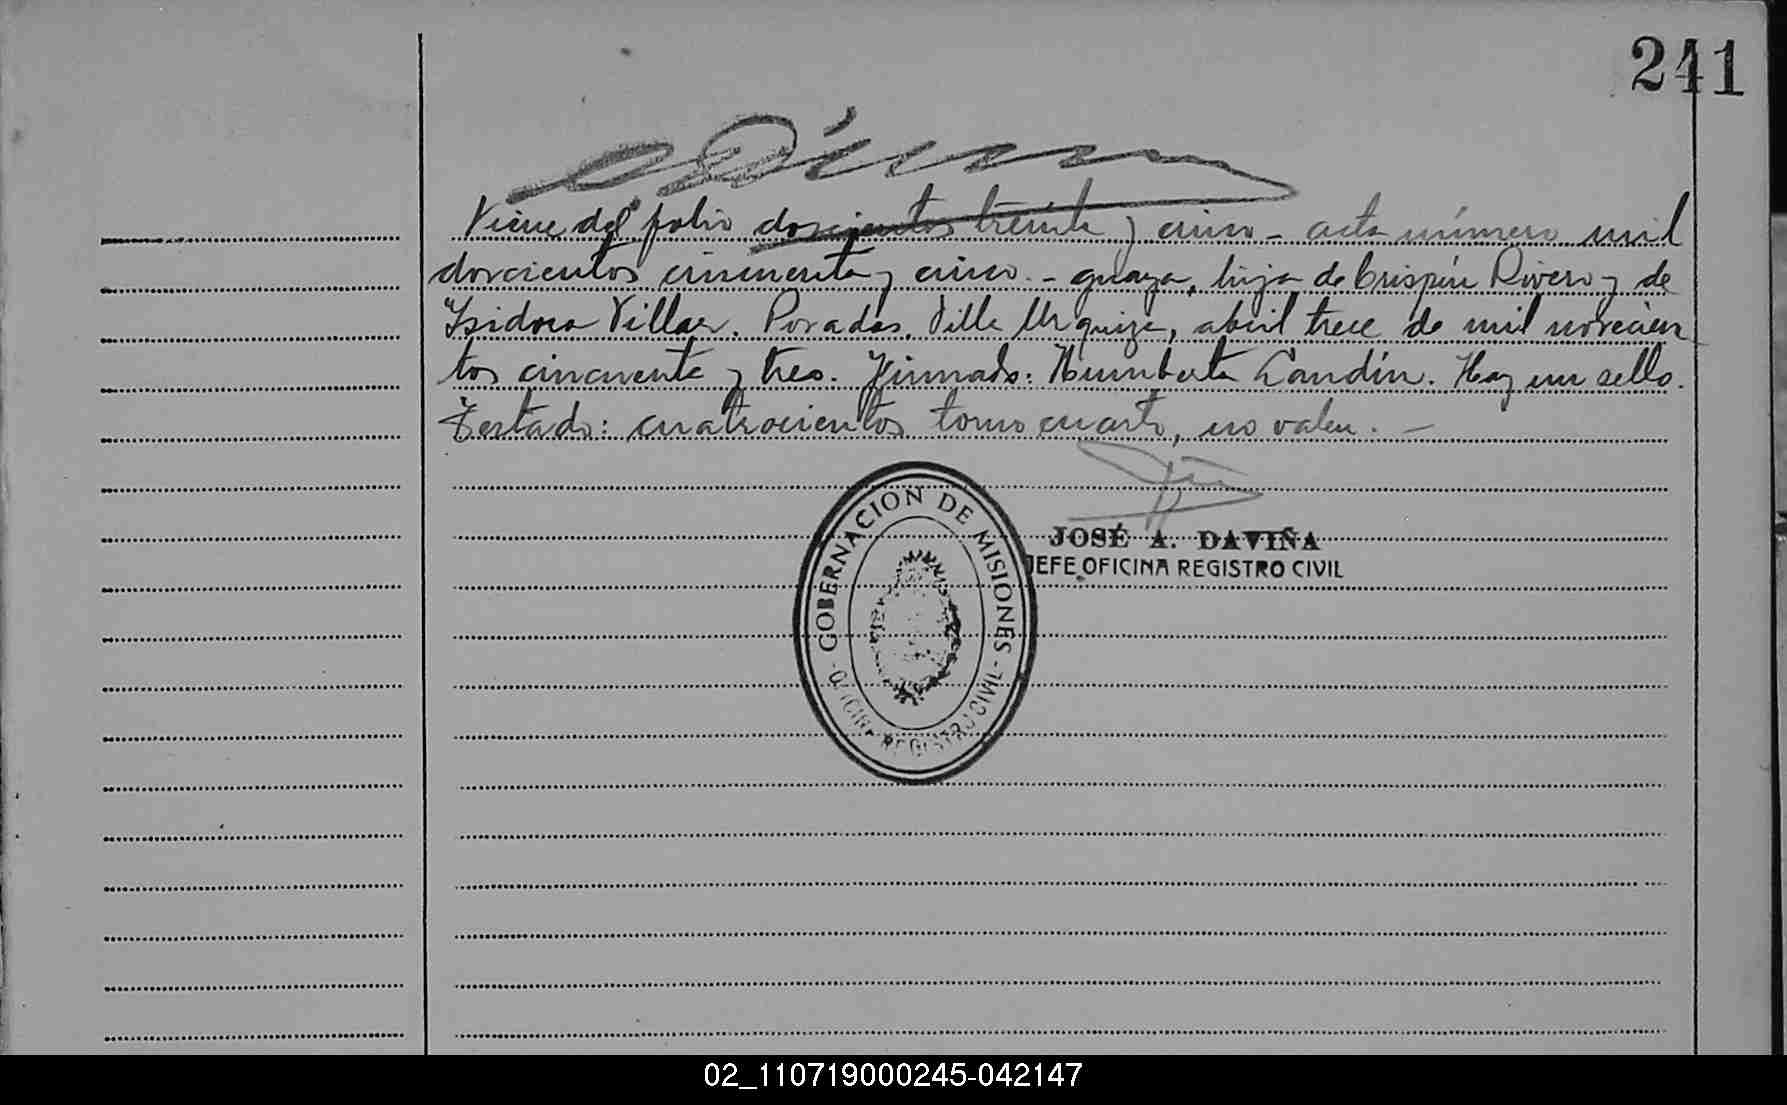 241
Viene del folio doscientos treinta y cinco - acta número mil
doscientos cincuenta y cinco. - guaya, hija de Crispín Rivero y de
Isidora Villar. Posadas, Villa Urquiza, abril trece de mil novecien
tos cincuenta y tres. Firmado: Humberto Landín. Hay un sello.
Testado: cuatrocientos tomo cuarto, no valen. -
JOSÉ A. DAVIÑA
JEFE OFICINA REGISTRO CIVIL
GOBERNACION DE MISIONES
OFICINA REGISTRO CIVIL
02_110719000245-042147